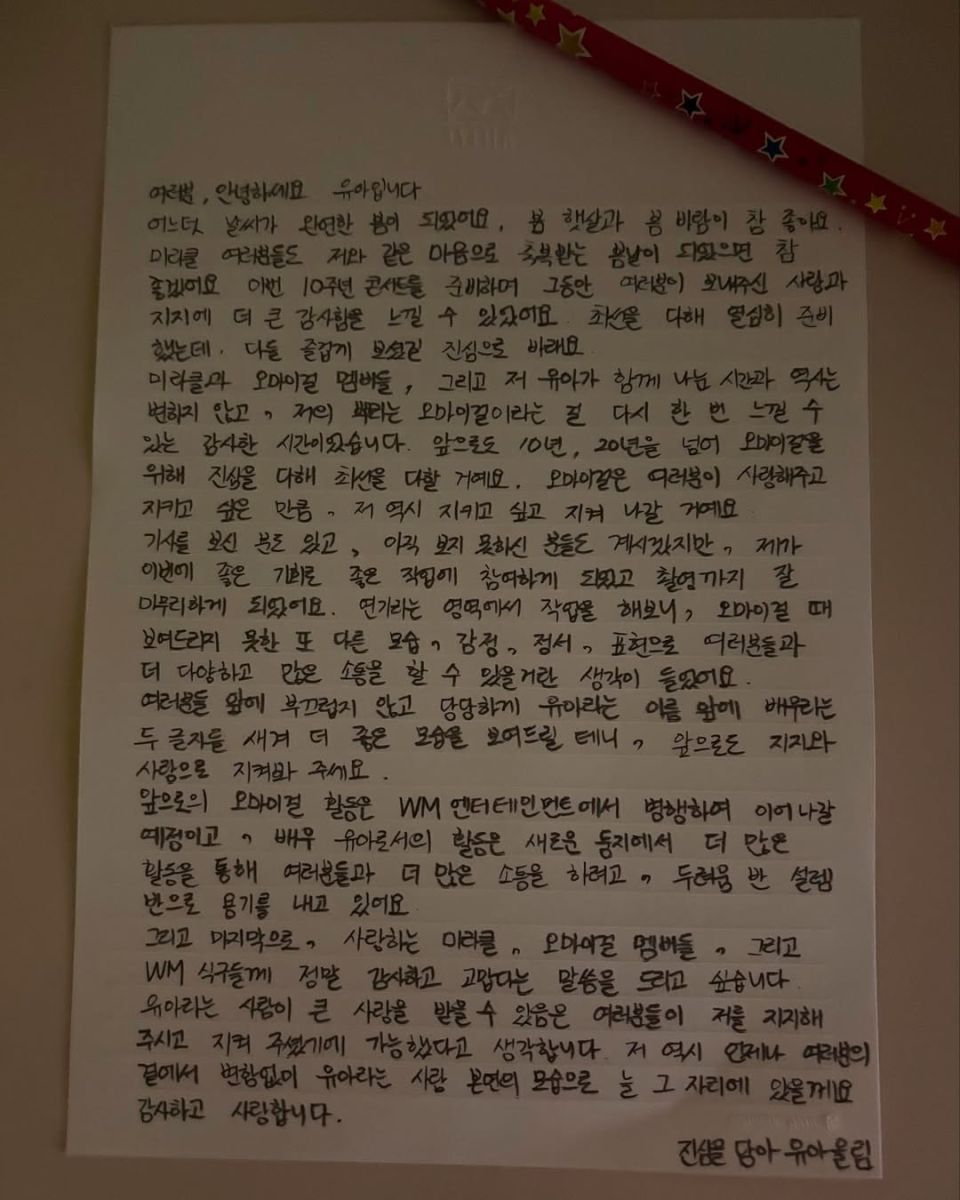 여러분, 안녕하세요 유아입니다
어느덧 날씨가 완연한 봄이 되었어요. 봄 햇살과 봄 바람이 참 좋아요.
미라클 여러분들도 저와 같은 마음으로 축복받는 봄날이 되었으면 참
좋겠어요 이번 10주년 콘서트를 준비하며 그동안 여러분이 보내주신 사랑과
지지에 더 큰 감사함을 느낄 수 있었어요. 최선을 다해 열심히 준비
했는데. 다들 즐겁게 보셨길 진심으로 바래요
미라클과 오마이걸 멤버들, 그리고 저 유아가 함께 나눈 시간과 역사는
변하지 않고, 저의 뿌리는 오마이걸이라는 걸 다시 한 번 느낄 수
있는 감사한 시간이었습니다. 앞으로도 10년, 20년을 넘어 오마이걸을
위해 진심을 다해 최선을 다할 거예요. 오마이걸은 여러분이 사랑해주고
지키고 싶은 만큼, 저 역시 지키고 싶고 지켜 나갈 거예요
기사를 보신 분도 있고, 아직 보지 못하신 분들도 계시겠지만, 제가
이번에 좋은 기회로 좋은 작업에 참여하게 되었고 촬영까지 잘
마무리하게 되었어요. 연기라는 영역에서 작업을 해보니, 오마이걸 때
보여드리지 못한 또 다른 모습, 감정, 정서, 표현으로 여러분들과
더 다양하고 많은 소통을 할 수 있을거란 생각이 들었어요.
여러분들 앞에 부끄럽지 않고 당당하게 유아라는 이름 앞에 배우라는
두 글자를 새겨 더 좋은 모습을 보여드릴 테니, 앞으로도 지지와
사랑으로 지켜봐 주세요.
앞으로의 오마이걸 활동은 WM엔터테인먼트에서 병행하여 이어나갈
예정이고, 배우 유아로서의 활동은 새로운 둥지에서 더 많은
활동을 통해 여러분들과 더 많은 소통을 하려고, 두려움 반 설렘
반으로 용기를 내고 있어요
그리고 마지막으로, 사랑하는 미라클, 오마이걸 멤버들, 그리고
WM 식구들께 정말 감사하고 고맙다는 말씀을 드리고 싶습니다.
유아라는 사람이 큰 사랑을 받을 수 있음은 여러분들이 저를 지지해
주시고 지켜 주셨기에 가능했다고 생각합니다. 저 역시 언제나 여러분의
곁에서 변함없이 유아라는 사람 본연의 모습으로 늘 그 자리에 있을께요
감사하고 사랑합니다.
진심을 담아 유아올림